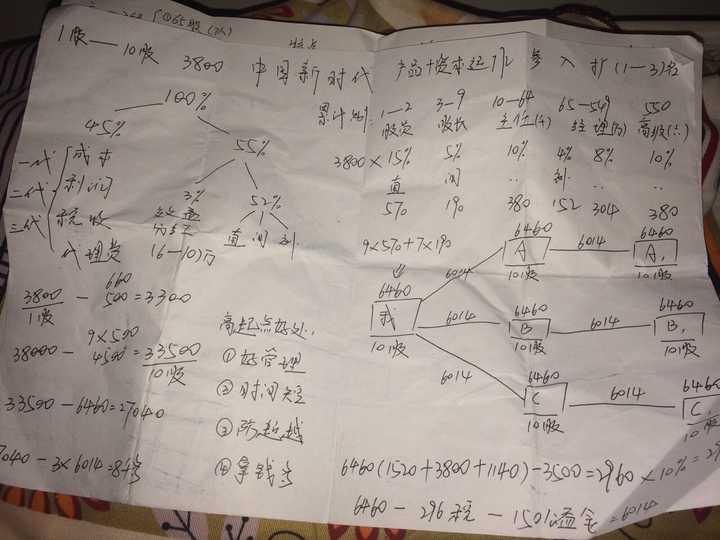 1股——10股 3800 中国新时代 产品+资本运作 参入 扩(1—3)名
100%
45% 55%
一代 成本
二代 利润
三代 税收
代理费
3% 52%
16—10万 直间别
累计制: 1—2 3—9 10—64 65—549 550
股员 股长 主任 经理 高级
3800×15% 5% 10% 4% 8% 10%
直 间 别 .. ..
570 190 380 152 304 380
9×570+7×190
6460 6460 6460
我 6014 A 6014 A₁
10股 10股 10股
6460 6460
6014 B 6014 B₁
10股 10股
6460 6460
6014 C 6014 C₁
10股 10股
660
3800 - 500=3300
1股
9×500
38000- 4500=33500
10股
33500-6460=27040
7040-3×6014=
高起点好处
①好管理
②时间短
③防超越
④拿钱多
6460(1520+3800+1140)-3500=2960×10%=29
6460-296税-150 溢金=6014